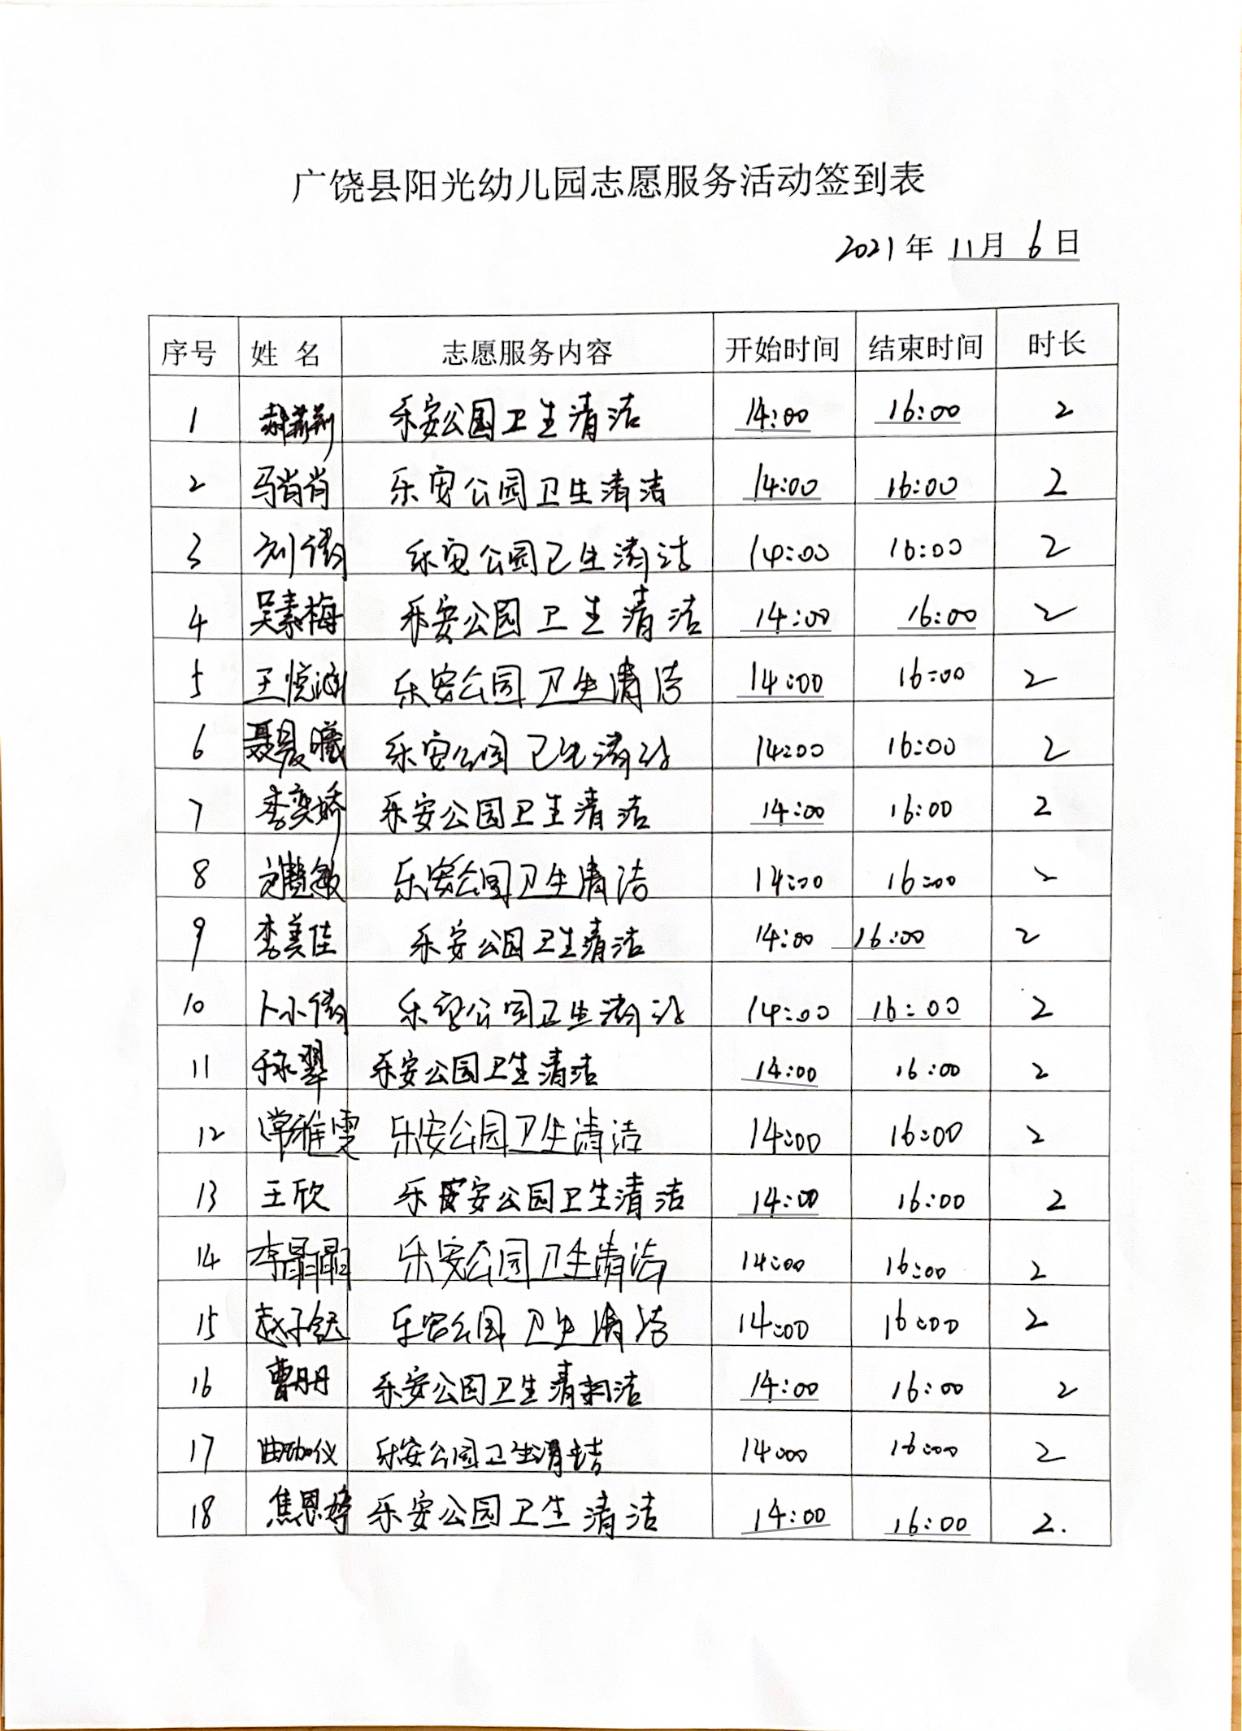 广饶县阳光幼儿园志愿服务活动签到表
2021年 11月 6日
序号 姓 名 志愿服务内容 开始时间 结束时间 时长
1 乐安公园卫生清洁 14:00 16:00 2
2 马肖肖 乐安公园卫生清洁 14:00 16:00 2
3 刘倩 乐安公园卫生清洁 14:00 16:00 2
4 吴素梅 乐安公园卫生清洁 14:00 16:00 2
5 王悦涵 乐安公园卫生清洁 14:00 16:00 2
6 聂晨曦 乐安公园卫生清洁 14:00 16:00 2
7 李奕娇 乐安公园卫生清洁 14:00 16:00 2
8 刘慧敏 乐安公园卫生清洁 14:00 16:00 2
9 李美佳 乐安公园卫生清洁 14:00 16:00 2
10 卜小倩 乐安公园卫生清洁 14:00 16:00 2
11 乐安公园卫生清洁 14:00 16:00 2
12 常雅雯 乐安公园卫生清洁 14:00 16:00 2
13 王欣 乐安公园卫生清洁 14:00 16:00 2
14 李晶晶 乐安公园卫生清洁 14:00 16:00 2
15 赵子铭 乐安公园卫生清洁 14:00 16:00 2
16 曹丹丹 乐安公园卫生清洁 14:00 16:00 2
17 曲珈仪 乐安公园卫生清洁 14:00 16:00 2
18 焦恩婷 乐安公园卫生清洁 14:00 16:00 2.